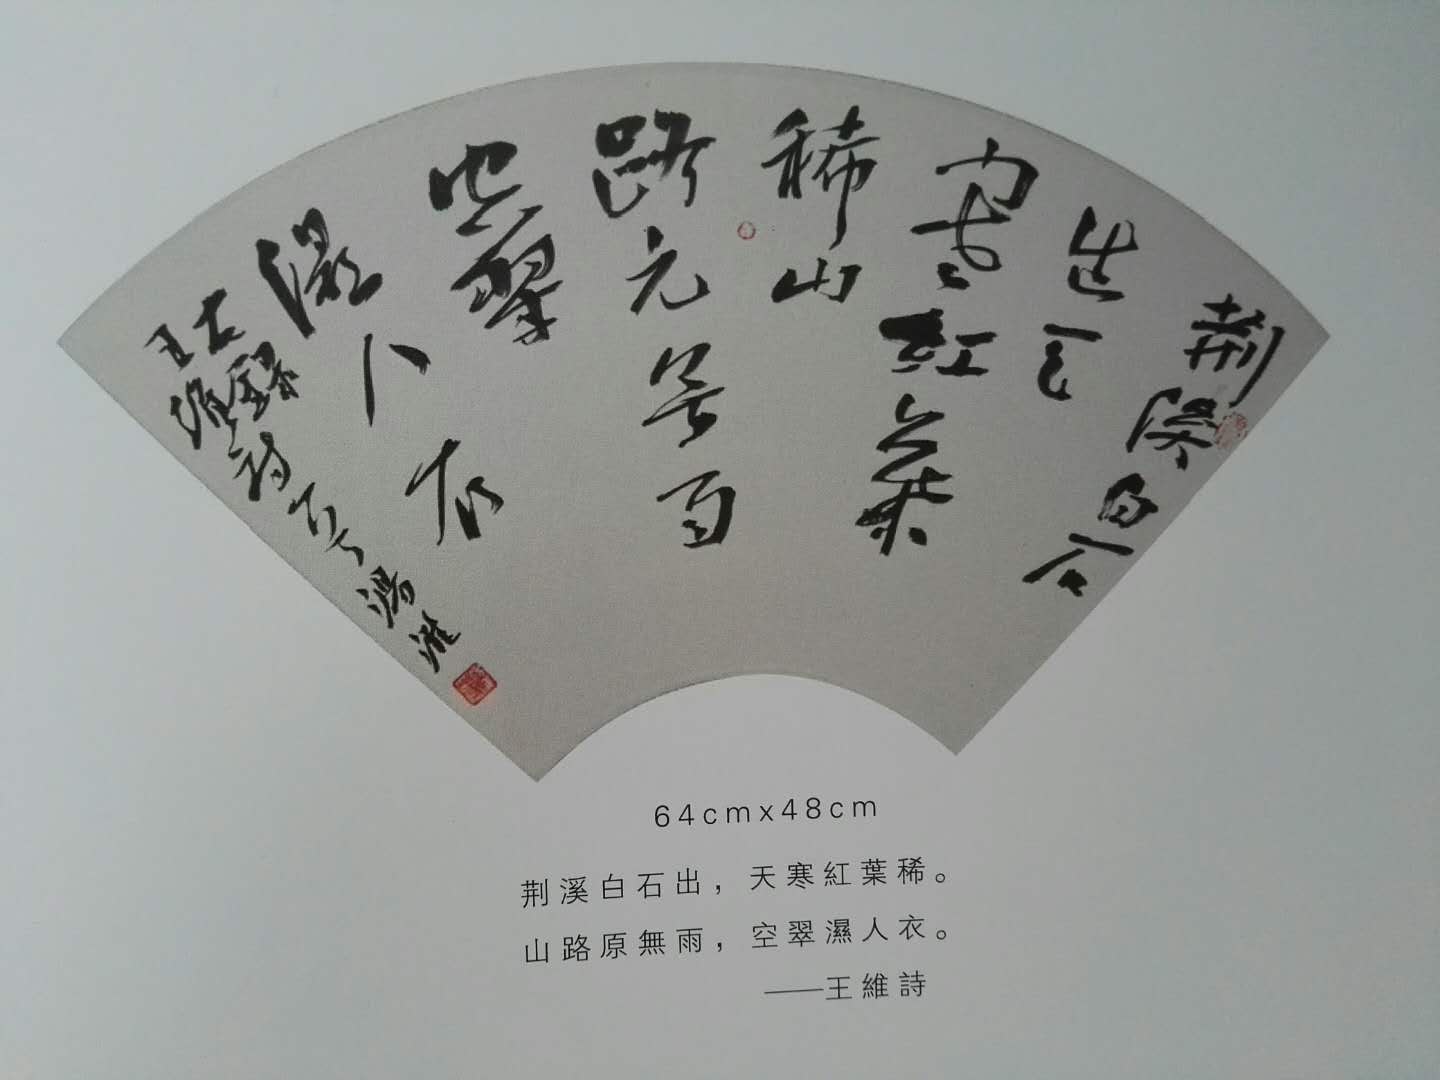 荆溪白石
出天
寒紅葉
稀山
路元無雨
空翠
濕人衣
右錄
王維詩
64cmx48cm
荆溪白石出，天寒紅葉稀。
山路原無雨，空翠濕人衣。
——王維詩